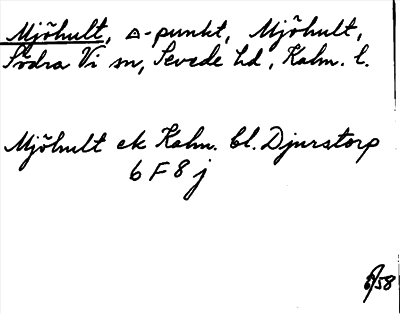 Mjöhult, △-punkt, Mjöhult,
Södra Vi sn, Sevede hd, Kalm. l.
Mjöhult ek Kalm. bl. Djurstorp
6 F 8 j
58